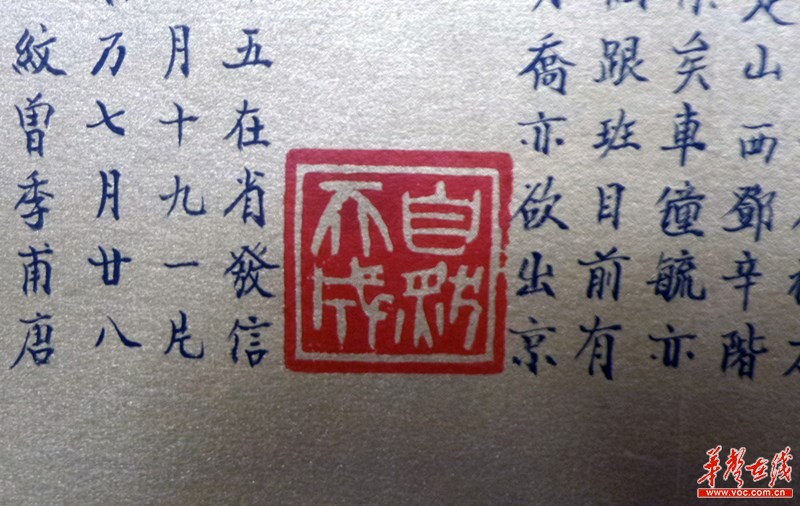 山西鄧辛階
矣車鐘毓亦
跟班目前有
喬亦欲出京
自
不成
五在省發信
月十九一片
万七月廿八
紋曾季甫唐
华声在线
www.voc.com.cn